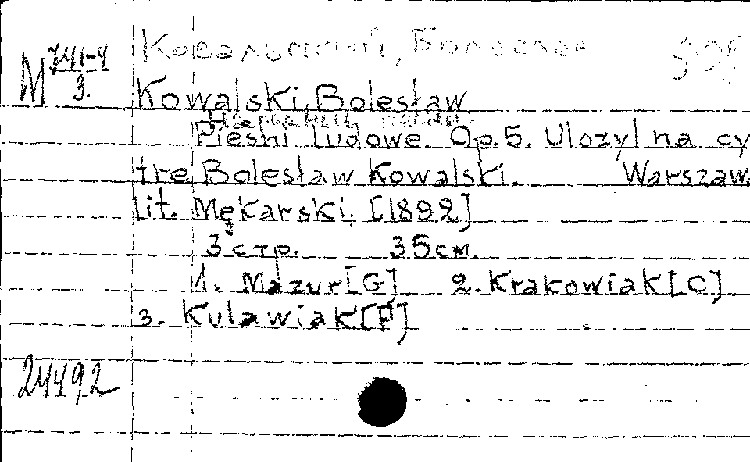 M 741-4/3.
Ковальский, Болеслав
Kowalski, Bolesław
Pieśni ludowe. Op. 5. Ulozyl na cy
trę Bolesław Kowalski. Warszaw.
lit. Mękarski, [1892]
3 стр. 35 см.
1. Mazur [G] 2. Krakowiak [C]
3. Kulawiak [F]
24492